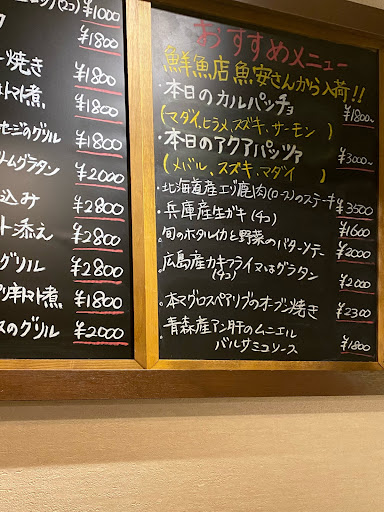 (2コ) ¥1000
¥1800
焼き ¥1800
トマト煮 ¥1800
セージのグリル ¥1800
ムグラタン ¥2000
込み ¥2800
ト添え ¥2800
グリル ¥2800
トマト煮 ¥1800
スのグリル ¥2000
おすすめメニュー
鮮魚店魚安さんから入荷!!
・本日のカルパッチョ ¥1800~
(マダイ、ヒラメ、スズキ、サーモン)
・本日のアクアパッツァ ¥3000~
(メバル、スズキ、マダイ)
・北海道産エゾ鹿肉(ロース)のステーキ ¥3500
・兵庫産生ガキ(4コ) ¥1600
・旬のホタルイカと野菜のバターソテー ¥2000
・広島産カキフライマタはグラタン ¥2000
(4コ)
・本マグロスペアリブのオーブン焼き ¥2300
・青森産アン肝のムニエル
バルサミコソース ¥1800